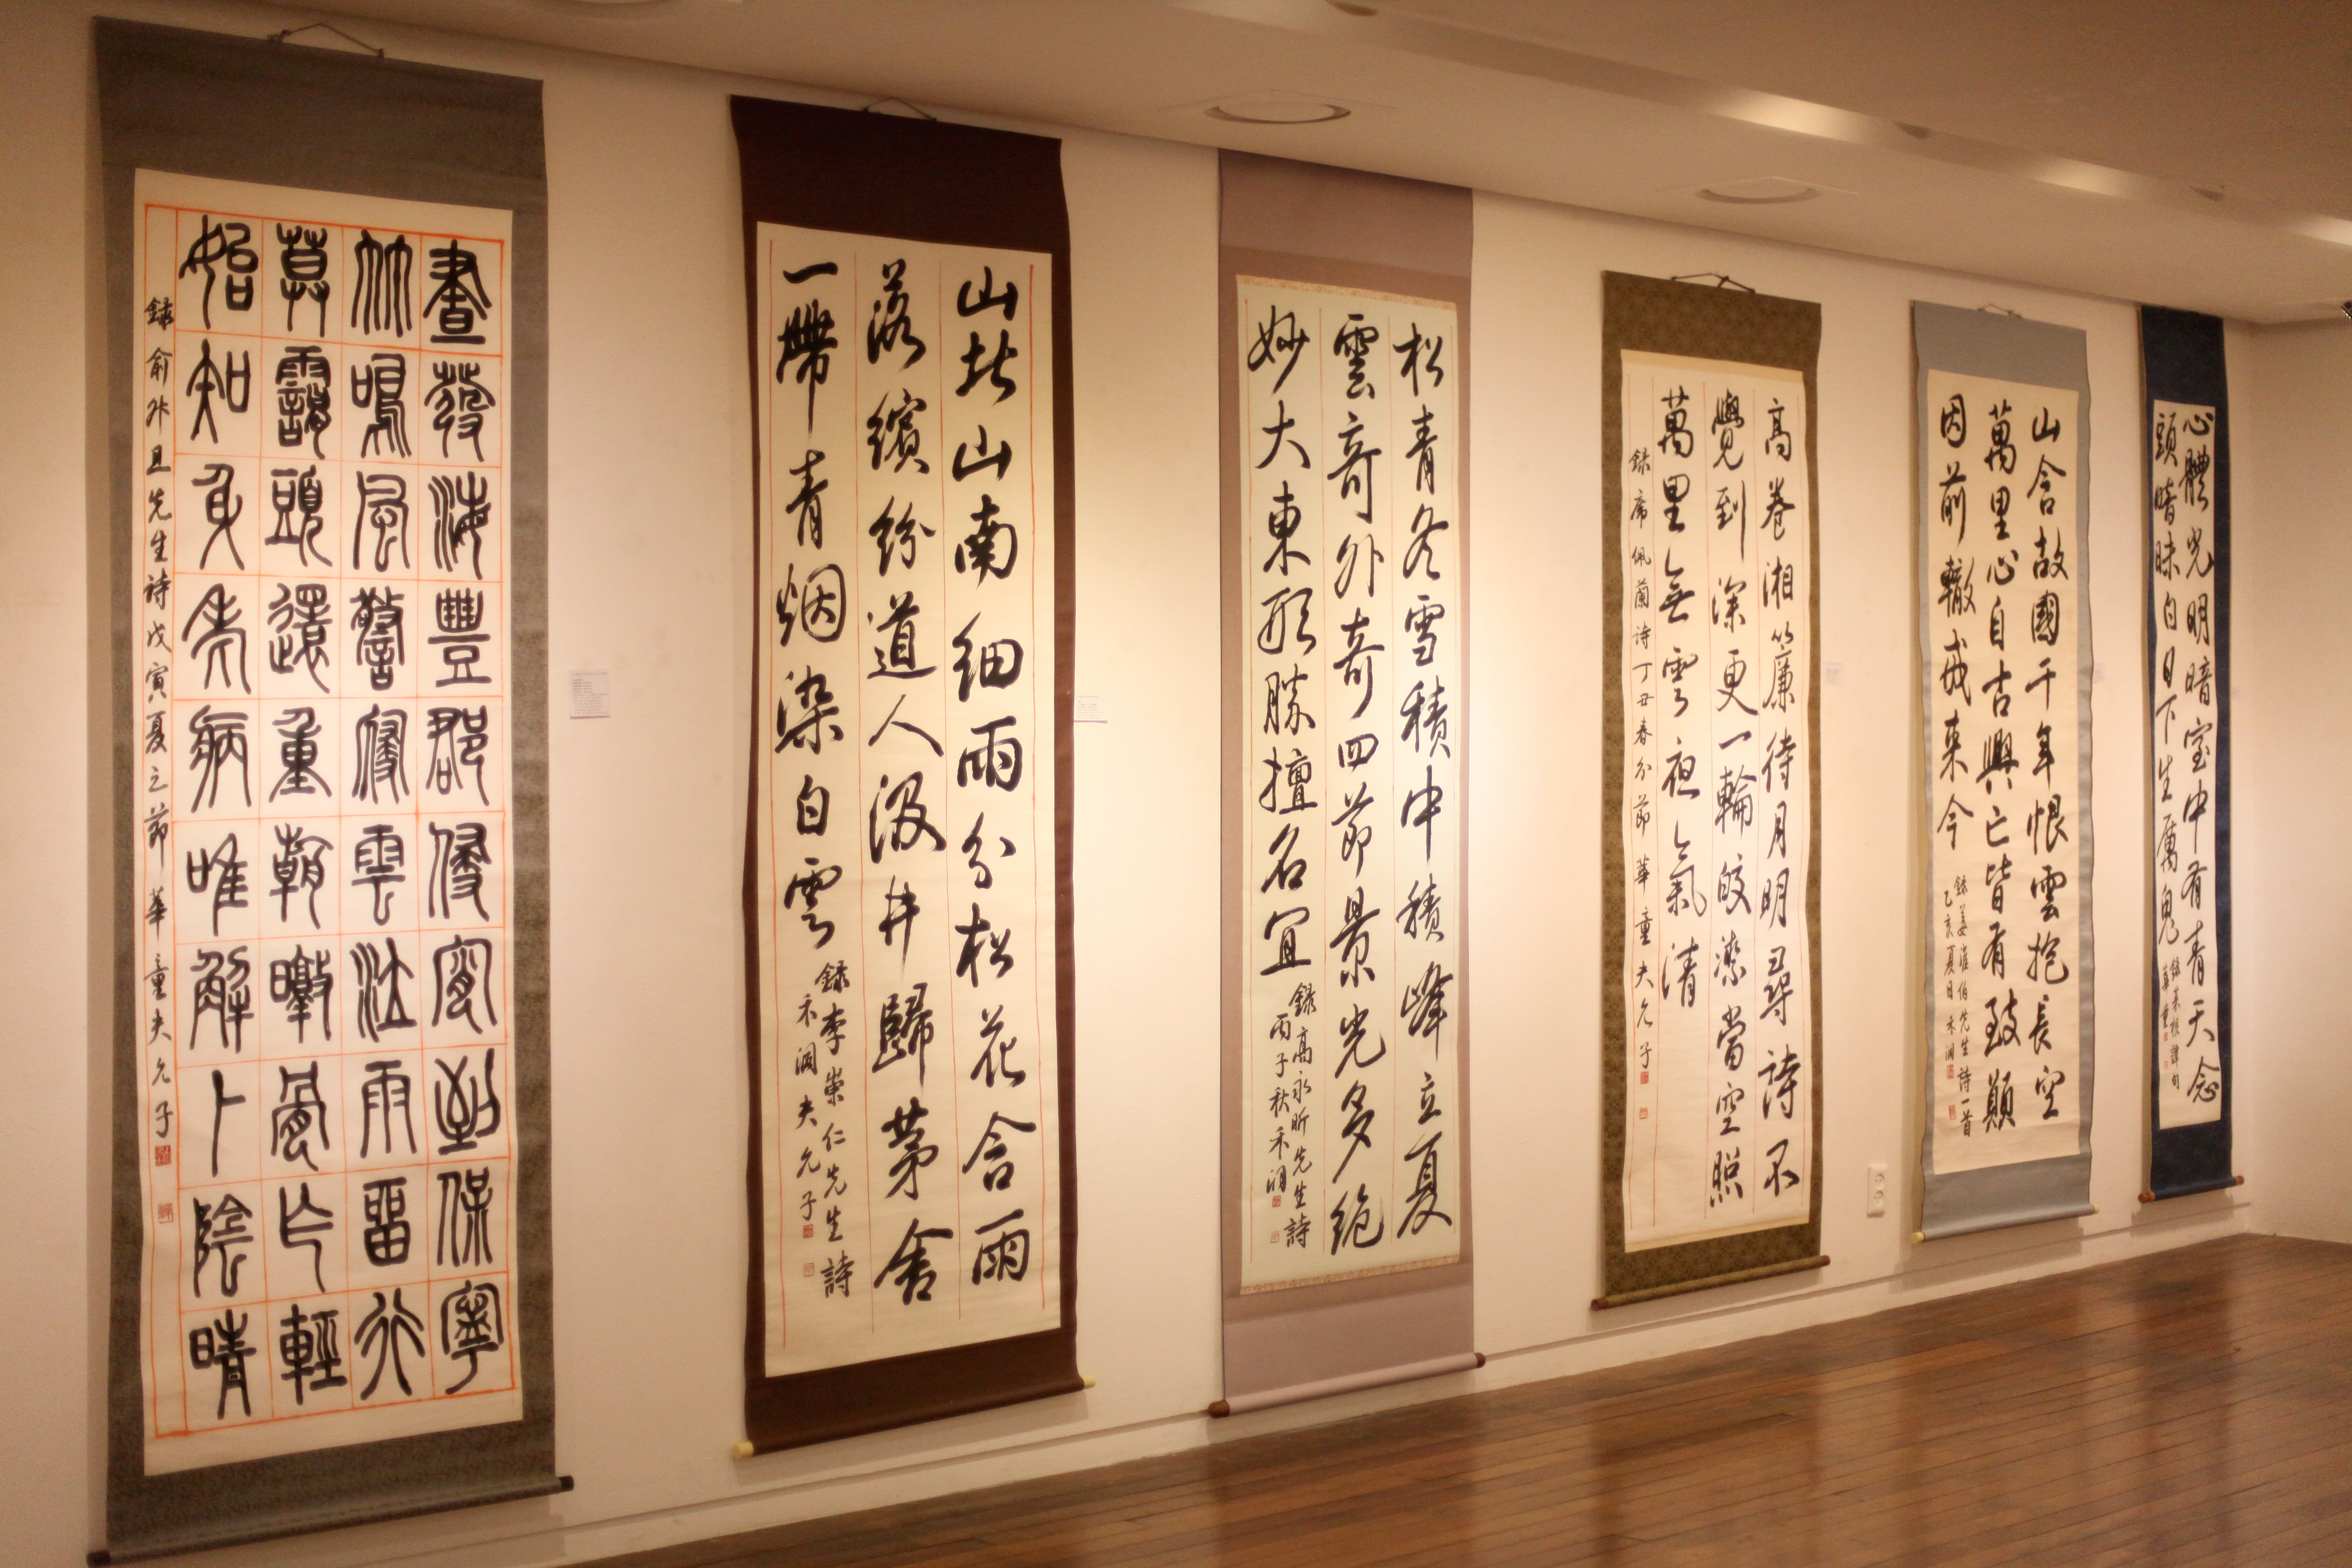 晝發海豐郡侵宵到保寧
竹鳴風警寢雲泣雨留行
暮靄頭還重朝暾骨乍輕
始知身老病唯解卜陰晴
錄俞升旦先生詩戊寅夏之節華童夫允子
山北山南細雨分松花含雨
落繽紛道人汲井歸茅舍
一帶青烟染白雲
錄李崇仁先生詩
禾潤夫允子
松青冬雪積中積峰立夏
雲奇外奇四節景光多絶
妙大東形勝擅名宜
錄高永昕先生詩
丙子秋禾潤
高卷湘簾待月明尋詩不
覺到深更一輪皎潔當空照
萬里無雲夜氣清
錄席佩蘭詩丁丑春分節華童夫允子
山含故國千年恨雲抱長空
萬里心自古興亡皆有致顚
因前轍戒來今
錄姜淮伯先生詩一首
乙亥夏日禾潤
心體光明暗室中有青天念
頭暗昧白日下生厲鬼
錄菜根譚句
華童